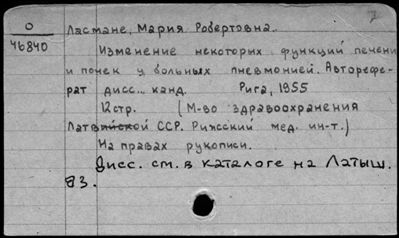 О
46840
Ласмане, Мария Робертовна.
Изменение некоторых функций печени
и почек у больных пневмонией. Авторефе-
рат дисс... канд. Рига, 1955
12стр. (М-во здравоохранения
Латвийской ССР. Рижсский мед. ин-т.)
На правах рукописи.
Дисс. см. в каталоге на Латыш.
яз.